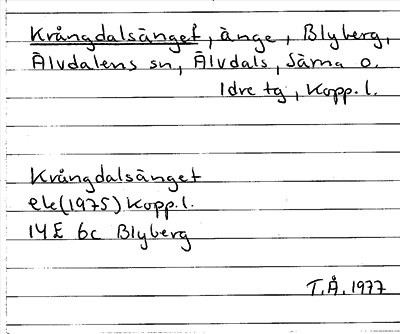 Krångdalsänget, änge, Blyberg,
Älvdalens sn, Älvdals, Särna o.
Idre tg, Kopp. l.
Krångdalsänget
ek (1975) Kopp. l.
14E 6c Blyberg
T.Å. 1977